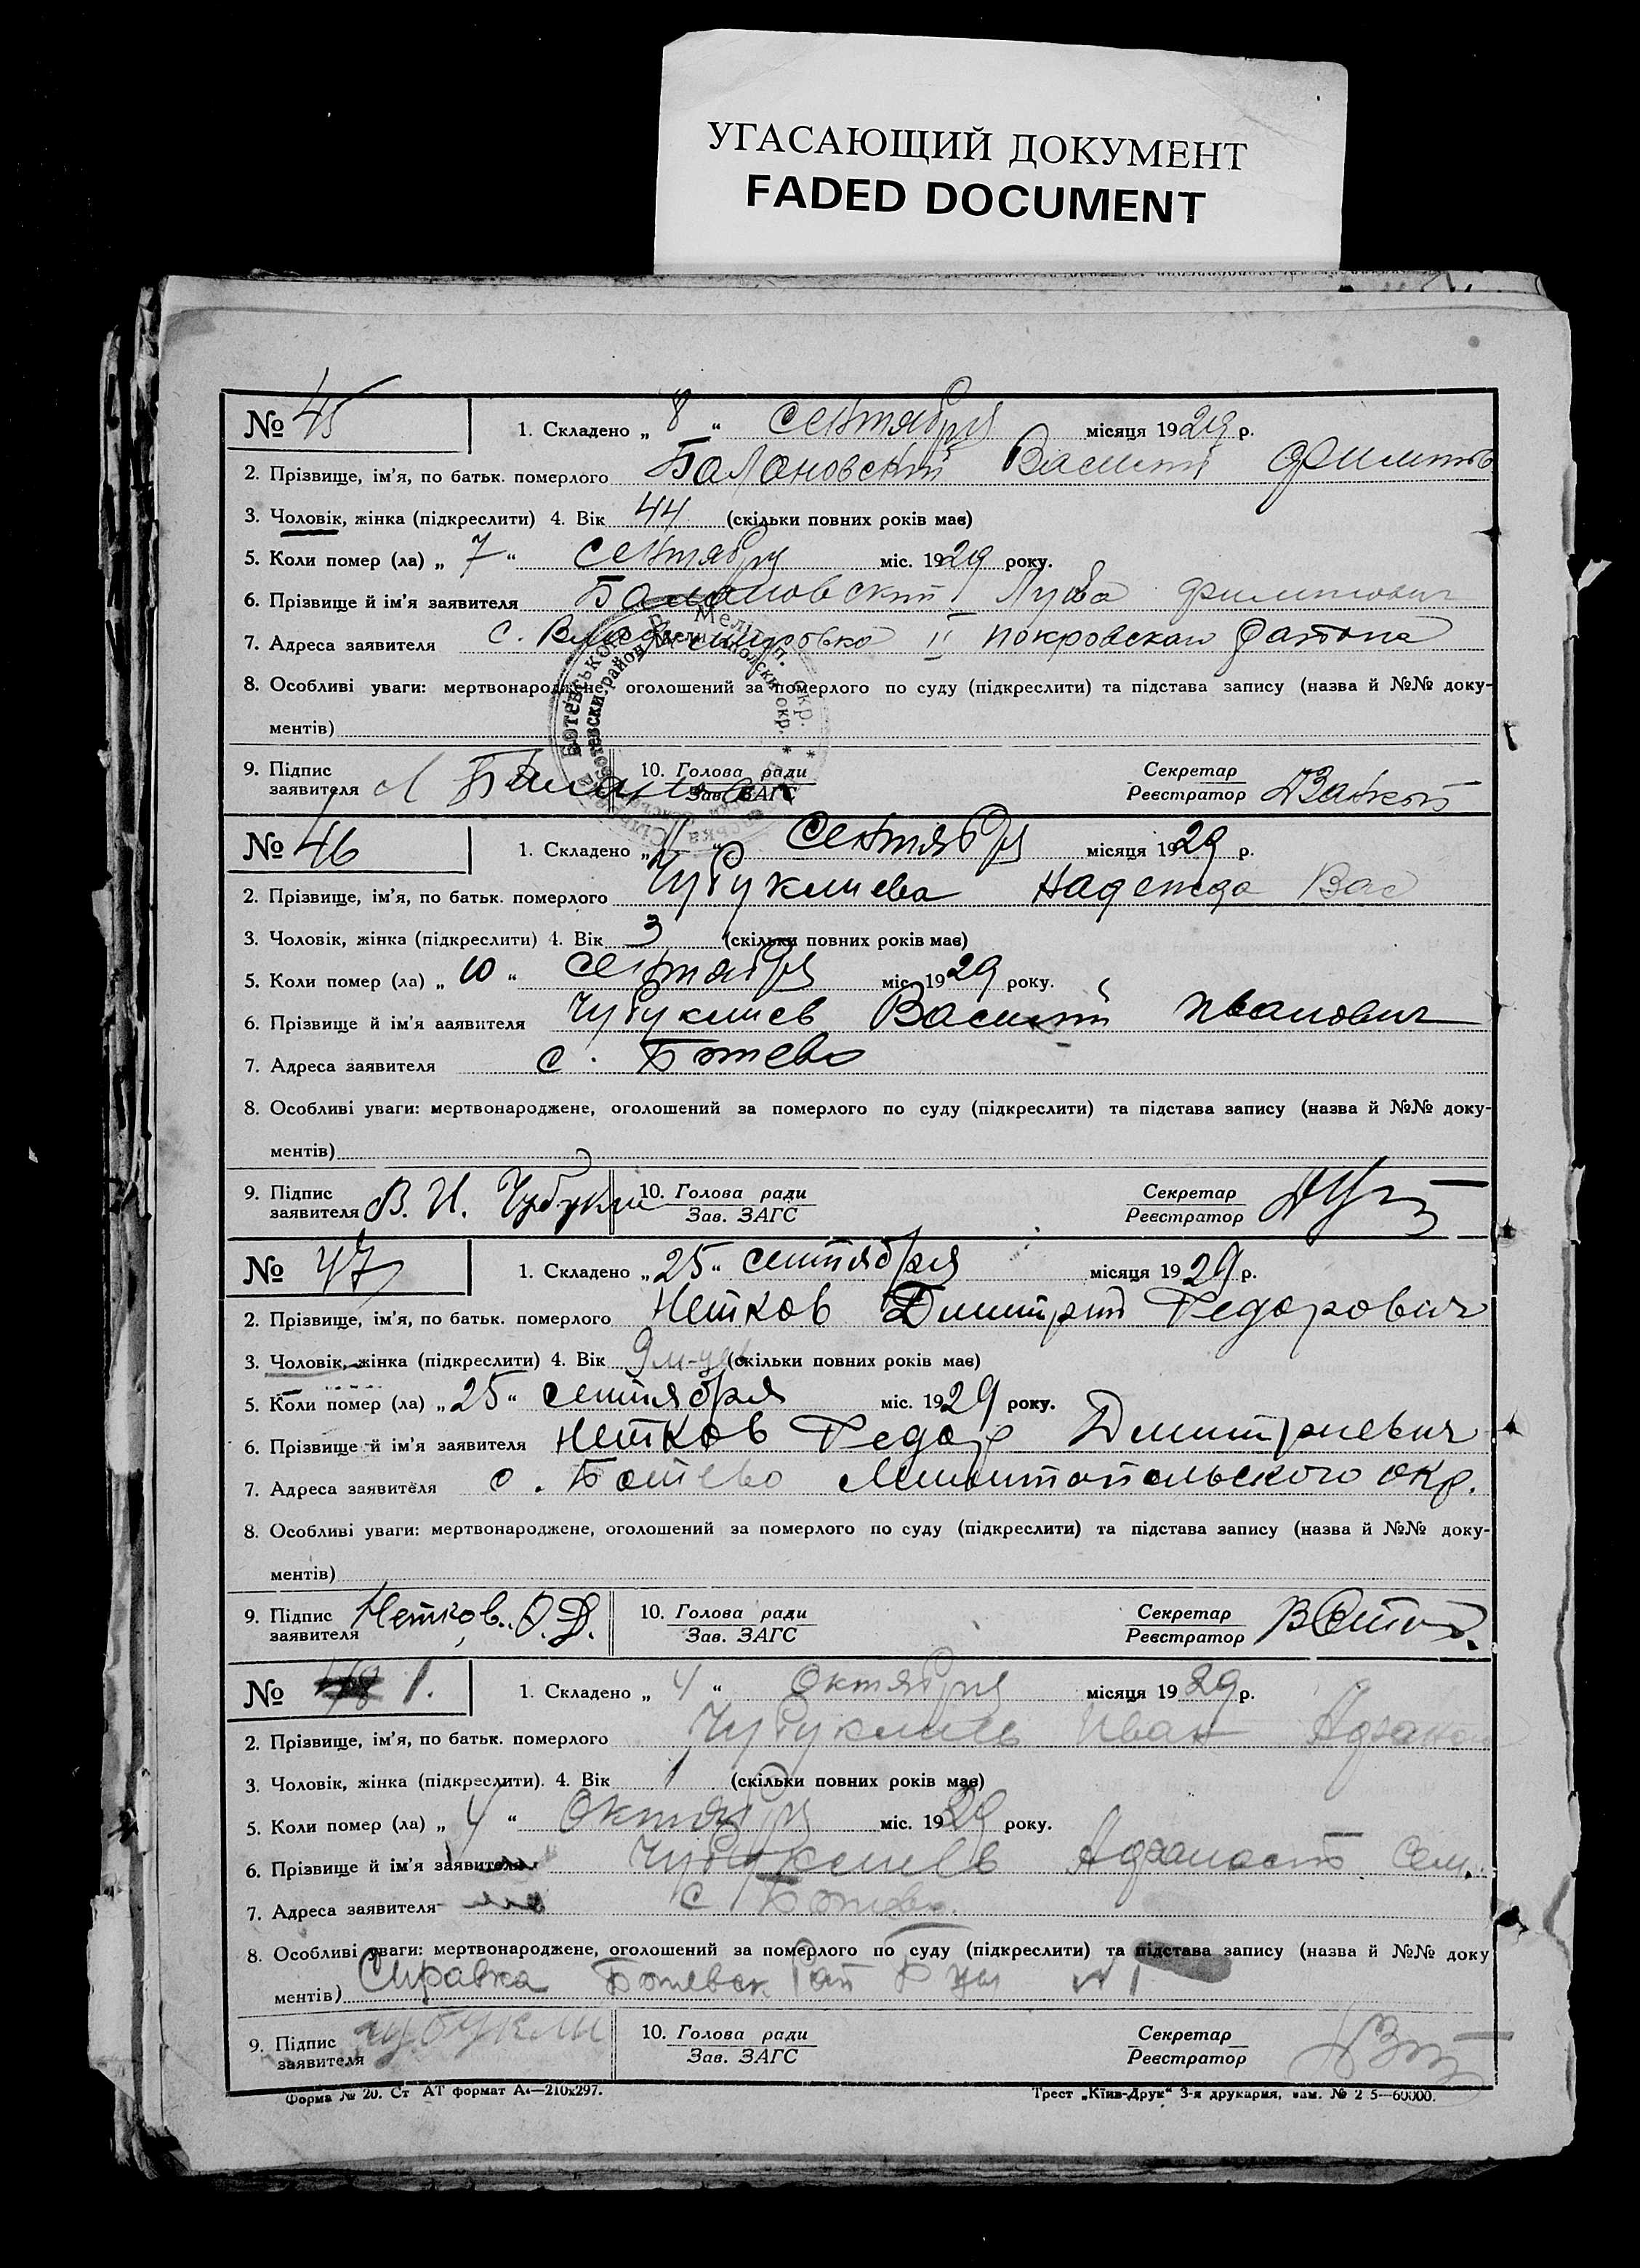 УГАСАЮЩИЙ ДОКУМЕНТ
FADED DOCUMENT
№ 45 1. Складено „ 8 “ Сентября місяця 1929 р.
2. Прізвище, ім'я, по батьк. померлого Балановский Василий Филипов
3. Чоловік, жінка (підкреслити) 4. Вік 44 (скільки повних років має)
5. Коли помер (ла) „ 7 “ Сентября міс. 1929 року.
6. Прізвище й ім'я заявителя Балановский Филипович
7. Адреса заявителя с. II Покровской
8. Особливі уваги: мертвонароджене, оголошений за померлого по суду (підкреслити) та підстава запису (назва й №№ доку-
ментів)
9. Підпис заявителя Л 10. Голова ради Зав. ЗАГС Секретар Реєстратор
№ 46 1. Складено „ 11 “ Сентября місяця 1929 р.
2. Прізвище, ім'я, по батьк. померлого Чубуклиева Надежда Вас
3. Чоловік, жінка (підкреслити) 4. Вік 3 (скільки повних років має)
5. Коли помер (ла) „ 10 “ Сентября міс. 1929 року.
6. Прізвище й ім'я заявителя Чубуклиев Василий Иванович
7. Адреса заявителя с. Ботево
8. Особливі уваги: мертвонароджене, оголошений за померлого по суду (підкреслити) та підстава запису (назва й №№ доку-
ментів)
9. Підпис заявителя В. И. Чубукли 10. Голова ради Зав. ЗАГС Секретар Реєстратор
№ 47 1. Складено „ 25 “ сентября місяця 1929 р.
2. Прізвище, ім'я, по батьк. померлого Нетков Димитрий Федорович
3. Чоловік, жінка (підкреслити) 4. Вік 9 м-цев (скільки повних років має)
5. Коли помер (ла) „ 25 “ сентября міс. 1929 року.
6. Прізвище й ім'я заявителя Нетков Федор Димитриевич
7. Адреса заявителя с. Ботево Мелитопольского окр.
8. Особливі уваги: мертвонароджене, оголошений за померлого по суду (підкреслити) та підстава запису (назва й №№ доку-
ментів)
9. Підпис заявителя Нетков. Ф. Д. 10. Голова ради Зав. ЗАГС Секретар Реєстратор
№ 48 1. 1. Складено „ 4 “ Октября місяця 1929 р.
2. Прізвище, ім'я, по батьк. померлого Чубуклиев Иван
3. Чоловік, жінка (підкреслити). 4. Вік 1 (скільки повних років має)
5. Коли помер (ла) „ 4 “ Октября міс. 1929 року.
6. Прізвище й ім'я заявителя Чубуклиев Афанасий Сем.
7. Адреса заявителя с Ботево.
8. Особливі уваги: мертвонароджене, оголошений за померлого по суду (підкреслити) та підстава запису (назва й №№ доку
ментів) Справка Ботевск № 1
9. Підпис заявителя чубукли 10. Голова ради Зав. ЗАГС Секретар Реєстратор
Форма № 20. Ст АТ формат А4—210х297. Трест „Київ-Друк“ 3-я друкарня, зам. № 2 5—60000.